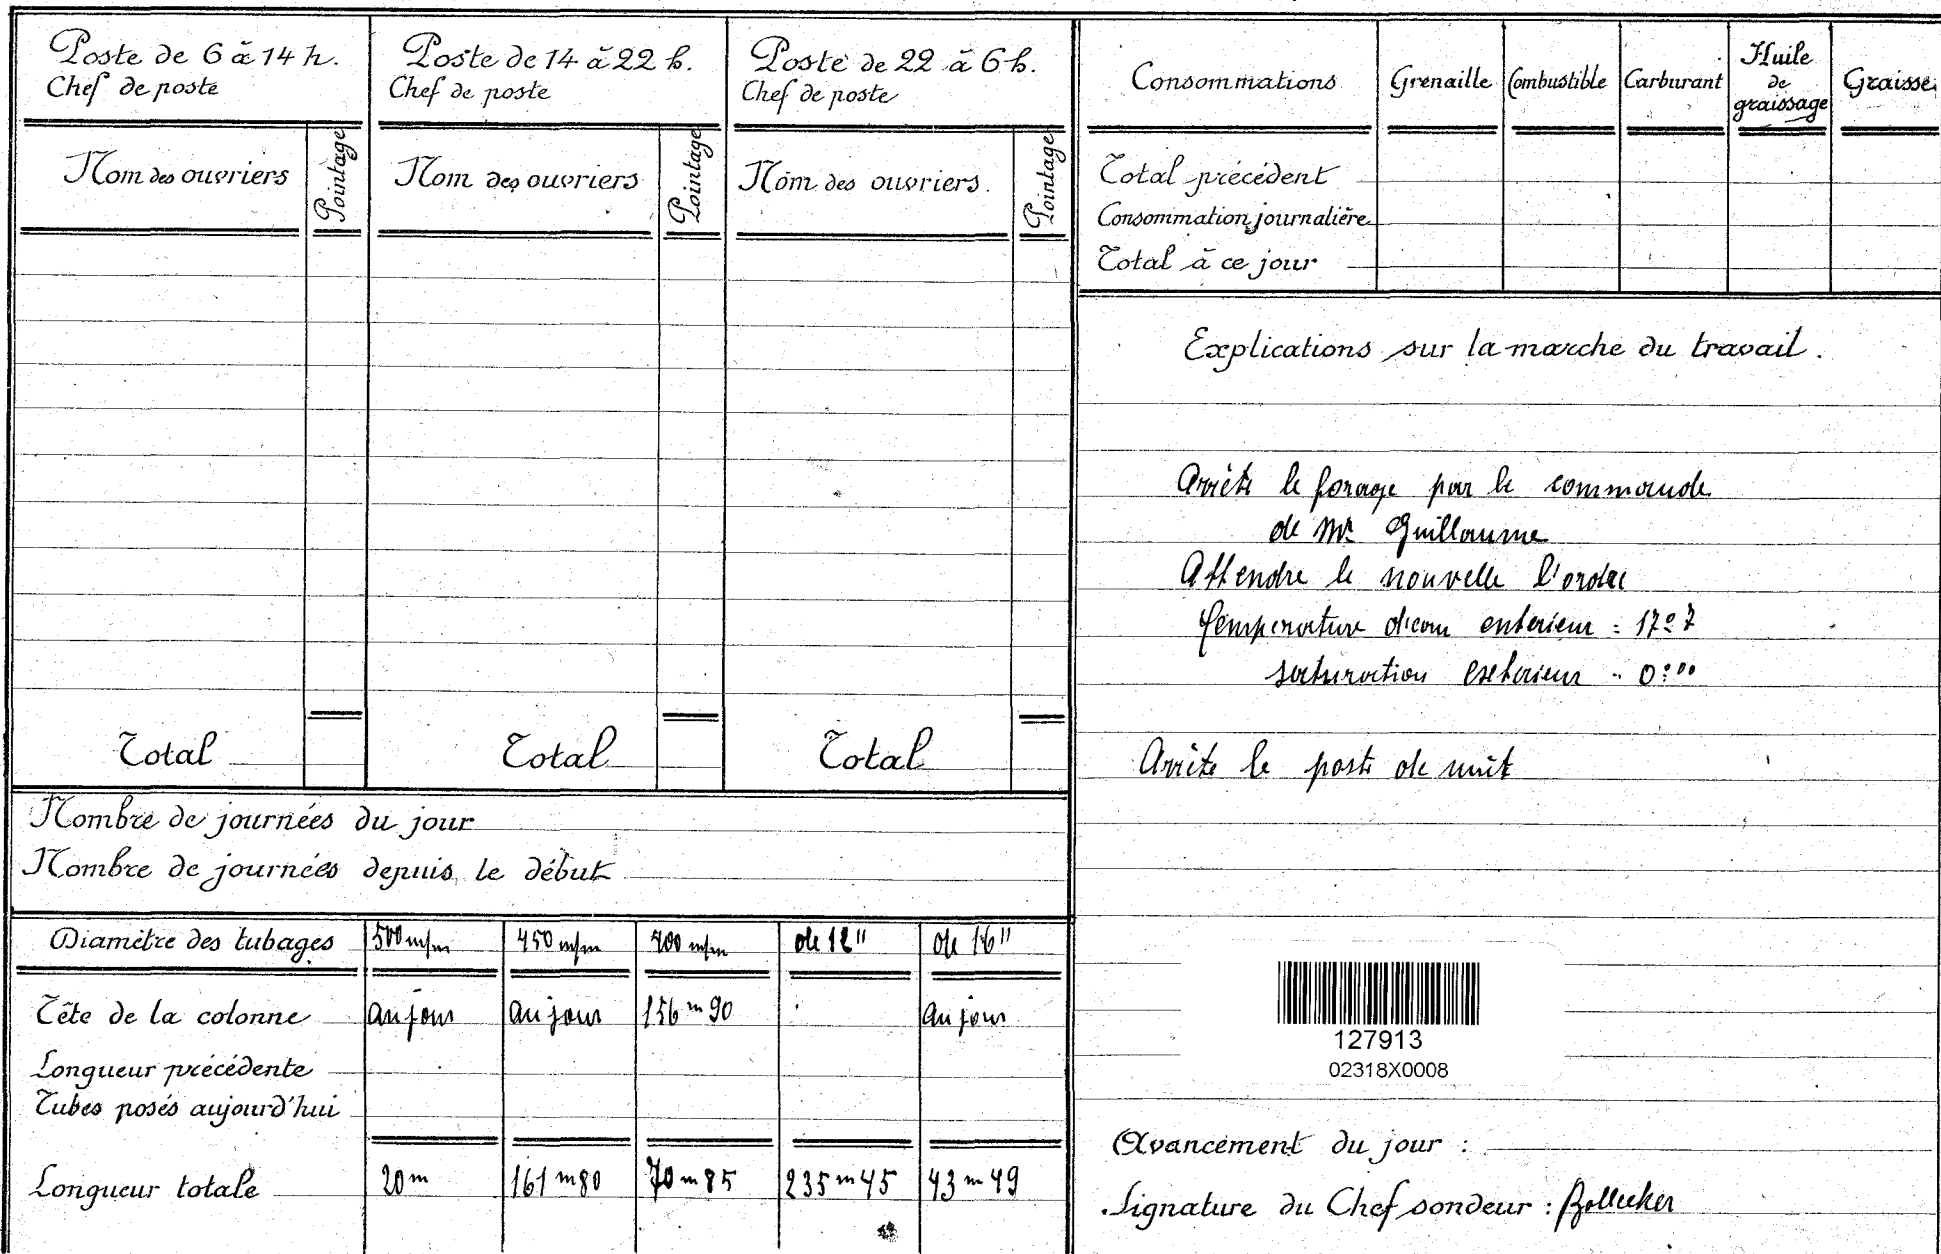 Poste de 6 à 14 h.
Chef de poste
Nom des ouvriers
Pointage
Total
Poste de 14 à 22 h.
Chef de poste
Nom des ouvriers
Pointage
Total
Poste de 22 à 6 h.
Chef de poste
Nom des ouvriers.
Pointage
Total
Nombre de journées du jour
Nombre de journées depuis le début
Diamètre des tubages 500 m/m 450 m/m 400 m/m de 12" de 16"
Tête de la colonne au jour au jour 156 m 90 au jour
Longueur précédente
Tubes posés aujourd'hui
Longueur totale 20 m 161 m 80 70 m 85 235 m 45 43 m 49
Consommations Grenaille Combustible Carburant Huile de graissage Graisse
Total précédent
Consommation journalière
Total à ce jour
Explications sur la marche du travail.
Arrète le forage par le commande
de Mr Guillaume
Attendre le nouvelle l'ordre
Température exterieur = 17° 7
saturation exterieur = 0:00
Arrète le poste de nuit
127913
02318X0008
Avancement du jour :
Signature du Chef sondeur :